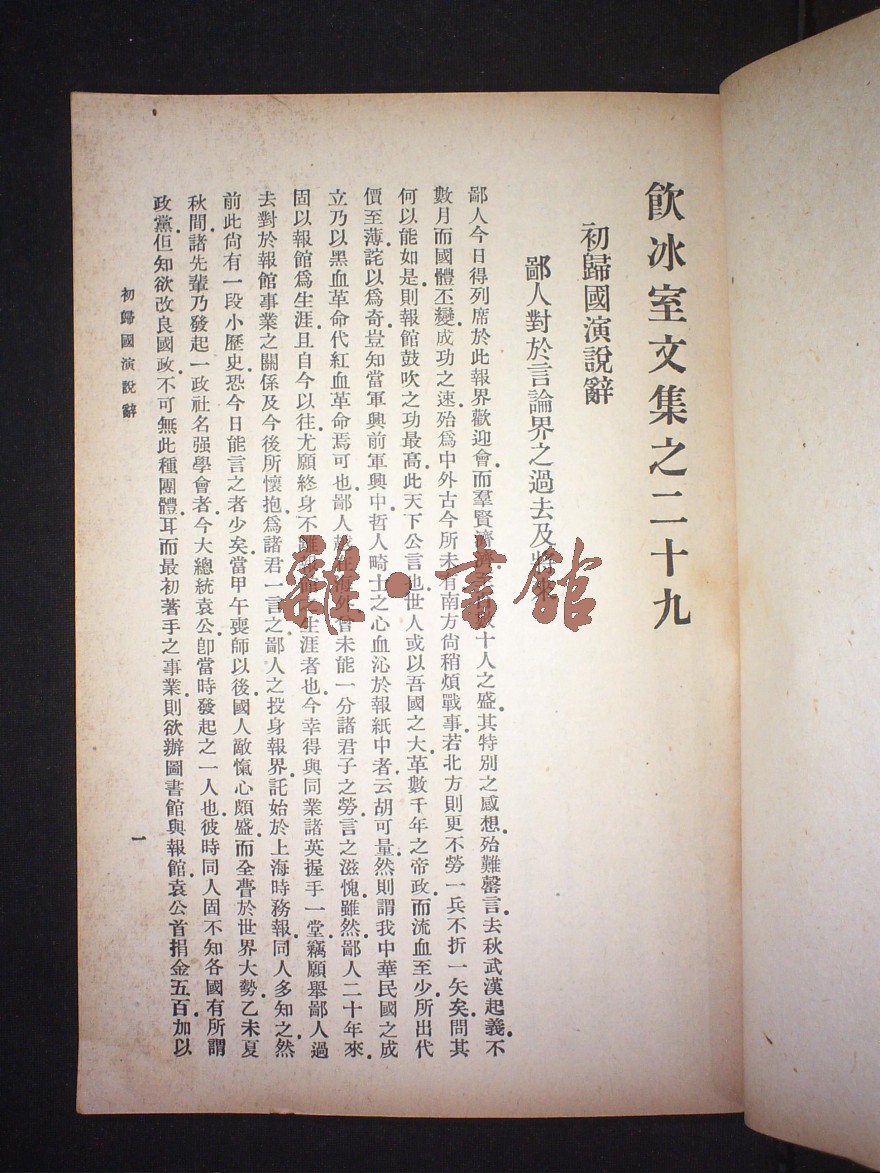 飮冰室文集之二十九
初歸國演說辭
鄙人對於言論界之過去及將來
鄙人今日得列席於此報界歡迎會而羣賢濟濟至百數十人之盛其特別之感想殆難罄言去秋武漢起義不
數月而國體丕變成功之速殆爲中外古今所未有南方尙稍煩戰事若北方則更不勞一兵不折一矢矣問其
何以能如是則報館鼓吹之功最高此天下公言也世人或以吾國之大革數千年之帝政而流血至少所出代
價至薄詫以爲奇豈知當軍興前軍興中哲人畸士之心血沁於報紙中者云胡可量然則謂我中華民國之成
立乃以黑血革命代紅血革命焉可也鄙人越在海外曾未能一分諸君子之勞言之滋愧雖然鄙人二十年來
固以報館爲生涯且自今以往尤願終身不離報館之生涯者也今幸得與同業諸英握手一堂竊願舉鄙人過
去對於報館事業之關係及今後所懷抱爲諸君一言之鄙人之投身報界託始於上海時務報同人多知之然
前此尙有一段小歷史恐今日能言之者少矣當甲午喪師以後國人敵愾心頗盛而全瞢於世界大勢乙未夏
秋間諸先輩乃發起一政社名强學會者今大總統袁公卽當時發起之一人也彼時同人固不知各國有所謂
政黨但知欲改良國政不可無此種團體耳而最初著手之事業則欲辦圖書館與報館袁公首捐金五百加以
初歸國演說辭
一
雜·書館